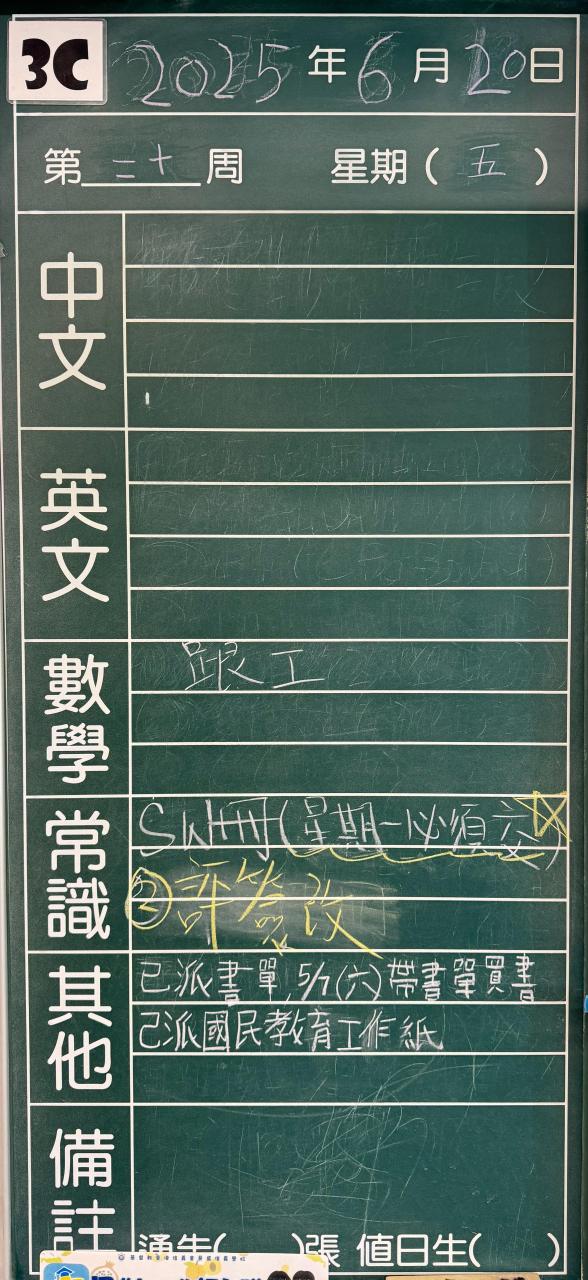 3C 2025年6月20日
第二十周 星期(五)
中文
英文
數學 跟工
常識 SWH冊(星期一必須交)
②評簽改
其他 已派書單, 5/7(六)帶書單買書
己派國民教育工作紙
備註
通告( )張 值日生( )